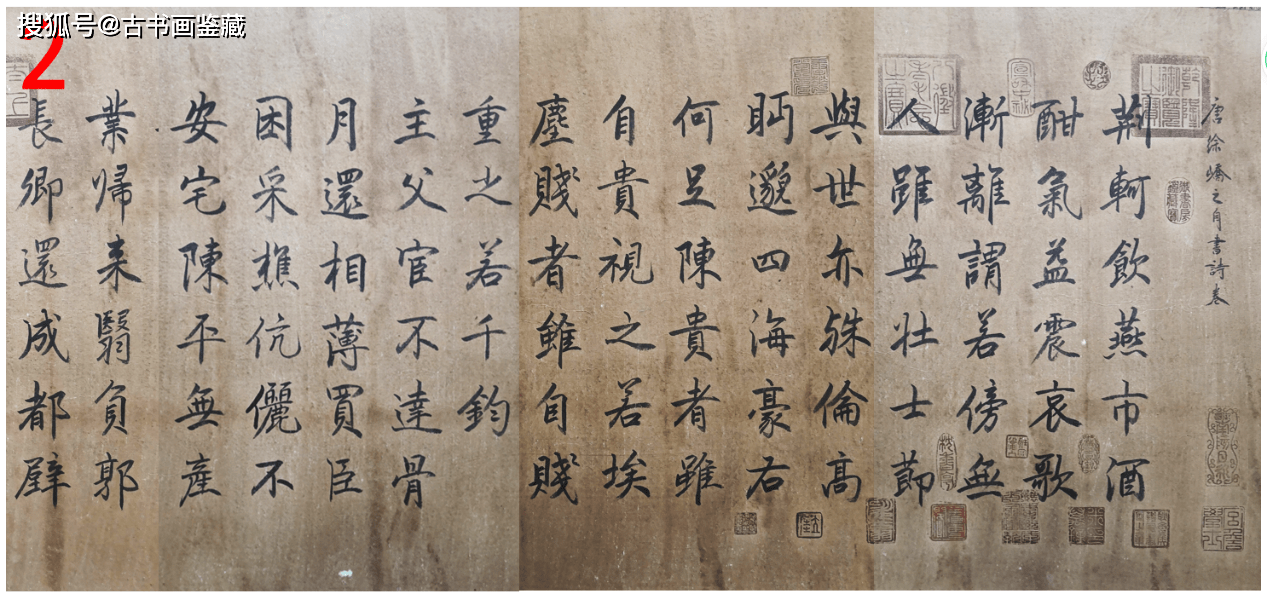 搜狐号@古书画鉴藏
2
唐徐嶠之自書詩卷
荊軻飲燕市酒
酣氣益震哀歌
漸離謂若傍無
人雖無壯士節
與世亦殊倫高
眄邈四海豪右
何足陳貴者雖
自貴視之若埃
塵賤者雖自賤
重之若千鈞
主父宦不達骨
月還相薄買臣
困采樵伉儷不
安宅陳平無產
業歸來翳負郭
長卿還成都壁